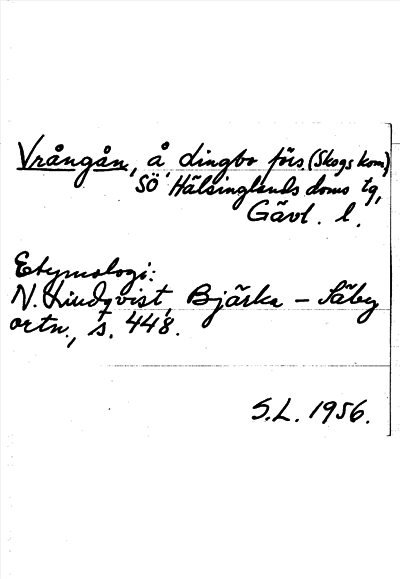 Vrångån, å Lingbo förs. (Skogs kom)
SÖ Hälsinglands doms tg,
Gävl. l.
Etymologi:
N. Lindqvist, Bjärka - Säby
ortn., s. 448.
S.L. 1956.